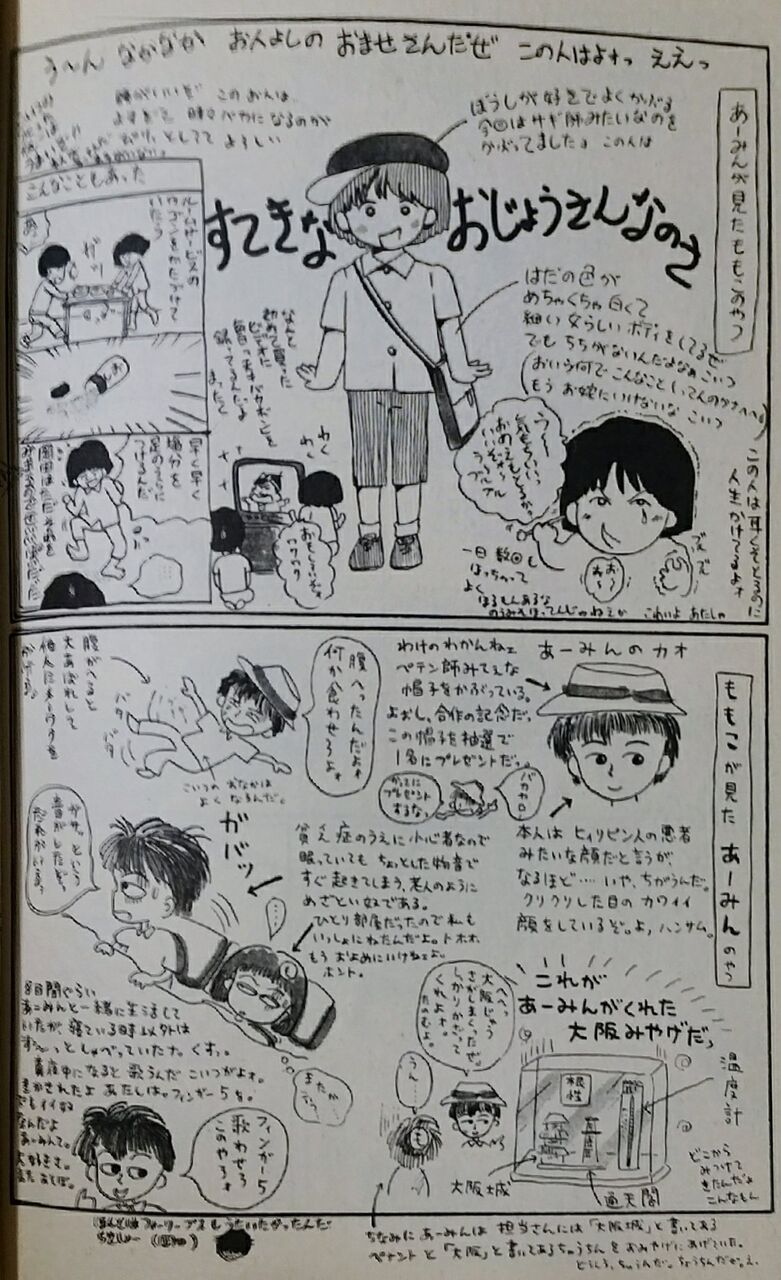 う〜ん なかなか お人よしの おませさんだぜ この人はよォっ ええっ
あーみんが見たももこのやつ
ぼうしが好きでよくかぶる
今回はサギ師みたいなのを
かぶってました。この人は
すてきな おじょうさんなのさ
はだの色が
めちゃくちゃ白くて
細い女らしいボディをしてるぜ
でもちちがないんだよなあこいつ
おいら何でこんなことしってんのかなへへ
もうお嫁にいけないなこいつ
この人は耳くそとるのに
人生かけてるよォ
う〜
気もちいい
おめえもとるか。
いいぞォ〜
ブルブル
ブルブル
おお〜
一日数回も
はっちゃって
よく
こわいよあたしゃ
こんなこともあった
ルームサービスの
ワゴンをかたづけて
いたら
あ
ガッ
早く早く
塩分を
なんと
初めて買った
ビデオに
わく
わく
おもしれえな。
ワクワク
ももこが見た あーみんのやつ
あーみんのカオ
わけのわかんねェ
ペテン師みてぇな
帽子をかぶっている。
よおし、合作の記念だ。
この帽子を抽選で
1名にプレゼントだ。
バカヤロー
かってに
プレゼント
するな。
本人は ヒィリピン人の悪者
みたいな顔だと言うが、
なるほど……いや、ちがうんだ。
クリクリした目のカワイイ
顔をしているぞ。よ,ハンサム。
腹へったんだよォ
何か食わせろよォ
腹がへると
大あばれして
他人にメーワクを
かける。
バタ
バタ
こいつのおなかは
よくなるんだ。
ガバッ
貧乏症のうえに小心者なので
眠っていても ちょっとした物音で
すぐ起きてしまう、老人のように
めざとい奴である。
ひとり部屋だったので私も
いっしょにねたんだよ。トホホ
もうおよめにいけねェよ。
ホント。
今サッという
音がしたぞ。
…
またか…
8日間ぐらい
あーみんと一緒に生活して
いたが、寝ている時以外は
ずーっとしゃべっていたナ。くすっ。
真夜中になると歌うんだこいつがよォ。
きかされたよあたしは。フィンガー5を。
でもイイ奴
なんだよ
あーみんて。
大好きさ。
フィンガー5
歌わせろ
このやろォ
これが
あーみんがくれた
大阪みやげだっ
へへっ
大阪じゅう
さがしまくったぜ。
しっかりかざって
くれよォ。
たのむよ。
うん…
根性
温度計
大阪城
通天閣
どこから
みつけて
きたんだよ
こんなもん
ちなみに あーみんは 担当さんには「大阪城」と書いてある
ペナントと「大阪」と書いてあるちょうちんをおみやげにあげていた。